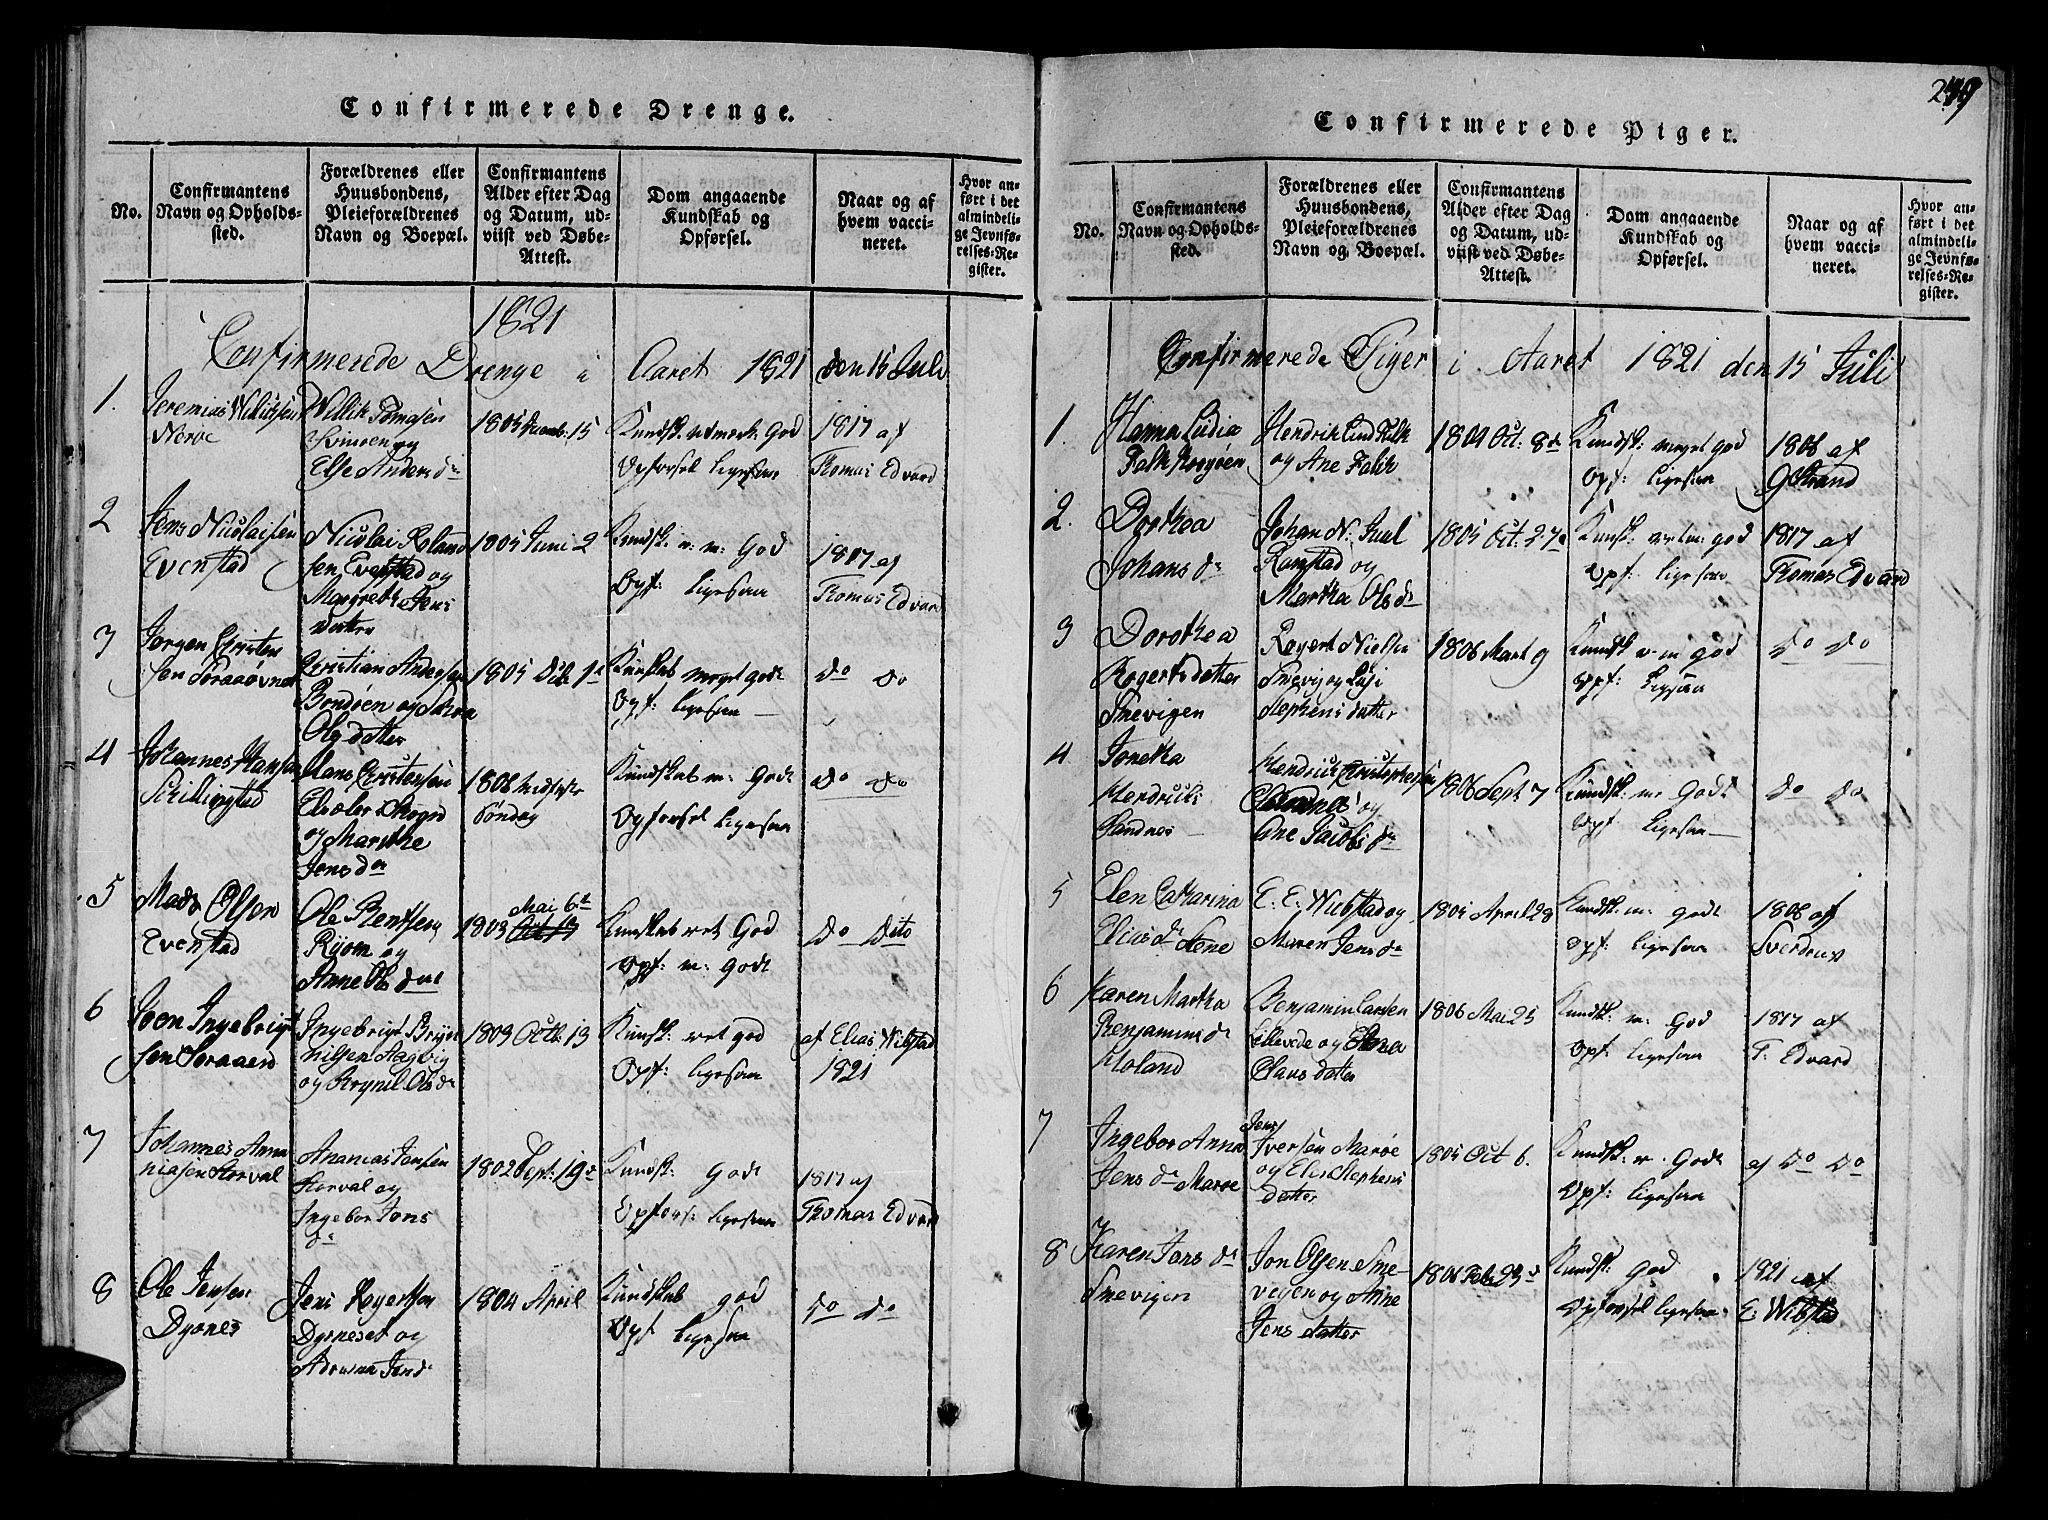 Confirmerede Drenge.
No.
Confirmantens
Navn og Opholds-
sted.
Forældrenes eller
Huusbondens,
Pleieforældrenes
Navn og Boepæl.
Confirmantens
Alder efter Dag
og Datum, ud-
viist ved Døbe-
Attest.
Dom angaaende
Kundskab og
Opførsel.
Naar og af
hvem vacci-
neret.
Hvor an-
ført i det
almindeli-
ge Jevnfø-
relses-Re-
gister.
1821
Confirmerede Drenge i Aaret 1821 den 15 Juli
1.
Jeremias Willitsen
Neroe
Willik Tomesen
og
Else Anders dr
1805 15
Kundsk: udmerk: God
Opforsel ligesaa
1817 af
Thomas Edvard
2
Jens Nicolaisen
Evenstad
Nicolai Roland
sen Evenstad og
Margrethe Jens
datter
1805 Juni 2
Kundsk: v: m: God
Opf: ligesaa
1817 af
Thomas Edvard
3
Jorgen Christen
sen
Christian Andersen
Bondøen og
Ols datter
1805 Octb 1
Kunskab meget godt
Opf: ligesaa
do do
4
Johannes Hansen
Skillingstad
Hans Christensen
og Marthe
Jens dr
1806
Søndag
Kundskab m: Godt
Opforsel ligesaa
do do
5
Mads Olsen
Evenstad
Ole Bentsen
og
Anne Ols dat
1803 Mai 6te
Kunskab ret God
Opf: m: Godt
do Dito
6
Joen Ingebrigt
sen Soraaen
Ingebrigt Bryn
nilsen og
og Brynil Ols dr
1803 Octb: 13
Kundsk: ret god
Opf: ligesaa
af Elias Wibstad
1821
7
Johannes Anna
niasen Torval
Ananias Jensen
Torval og
Ingebor Jons
dr
1802 Sept: 19
Kundsk: Godt
Opfors: ligesaa
1817 af
Thomas Edvard
8
Ole Jensen
Dyrnes
Jens Rogertsen
Dyrneset og
Jens dr
1804 April
Kundskab god
Opf ligesaa
do do
Confirmerede Piger.
No.
Confirmantens
Navn og Opholds-
sted.
Forældrenes eller
Huusbondens,
Pleieforældrenes
Navn og Boepæl.
Confirmantens
Alder efter Dag
og Datum, ud-
viist ved Døbe-
Attest.
Dom angaaende
Kundskab og
Opførsel.
Naar og af
hvem vacci-
neret.
Hvor an-
ført i det
almindeli-
ge Jevnfø-
relses-Re-
gister.
Confirmerede Piger i Aaret 1821 den 15 Juli
1.
Hanna Lidia
Falk
Hendrik Lind Falk
og Ane Falk
1804 Oct: 8de
Kundsk: meget god
Opf: ligesaa
1806 af
G Strand
2.
Dorthea
Johans dr
Johan N: Juul
Ramstad og
Martha Ols dr
1805 Oct: 27
Kunsk: ret m: god
Opf: ligesaa
1817 af
Thomas Edvard
3
Dorothea
Rogertsdatter
Smevigen
Rogert Nielsen
Smevig og Lisi
Stephens datter
1806 Mart 9
Kundsk v m god
Opf: ligesaa
do do
4
Jonetha
Hendrichs
Sandnes
Hendrich Christophersen
og
Ane Jacobs dr
1806 Sept 7
Kundsk: m: Godt
Opf ligesaa
do do
5
Elen Catharina
Elias dr
E. E. Wibstad og
Maren Jens dr
1805 April 28
Kundsk: m: godt
Opf: ligesaa
1806 af
Sverdrup
6
Karen Martha
Benjamins dr
Moland
Benjamin Larsen
og
Olaus datter
1806 Mai 25
Kundsk: m: God
Opf: ligesaa
1817 af
T: Edvard
7
Ingebor Anna
Jens dr Maroe
Jens
Iversen Maroe
og Elen Stephens
datter
1805 Oct 6.
Kundsk: v: Godt
Opf: ligesaa
af do do
8
Karen Jons dr
Smevigen
Jon Olsen Sme-
vegen og Anne
Jens datter
1806 Feb: 23
Kundsk: God
Opforsel ligesaa
1821 af
E: Wibstad